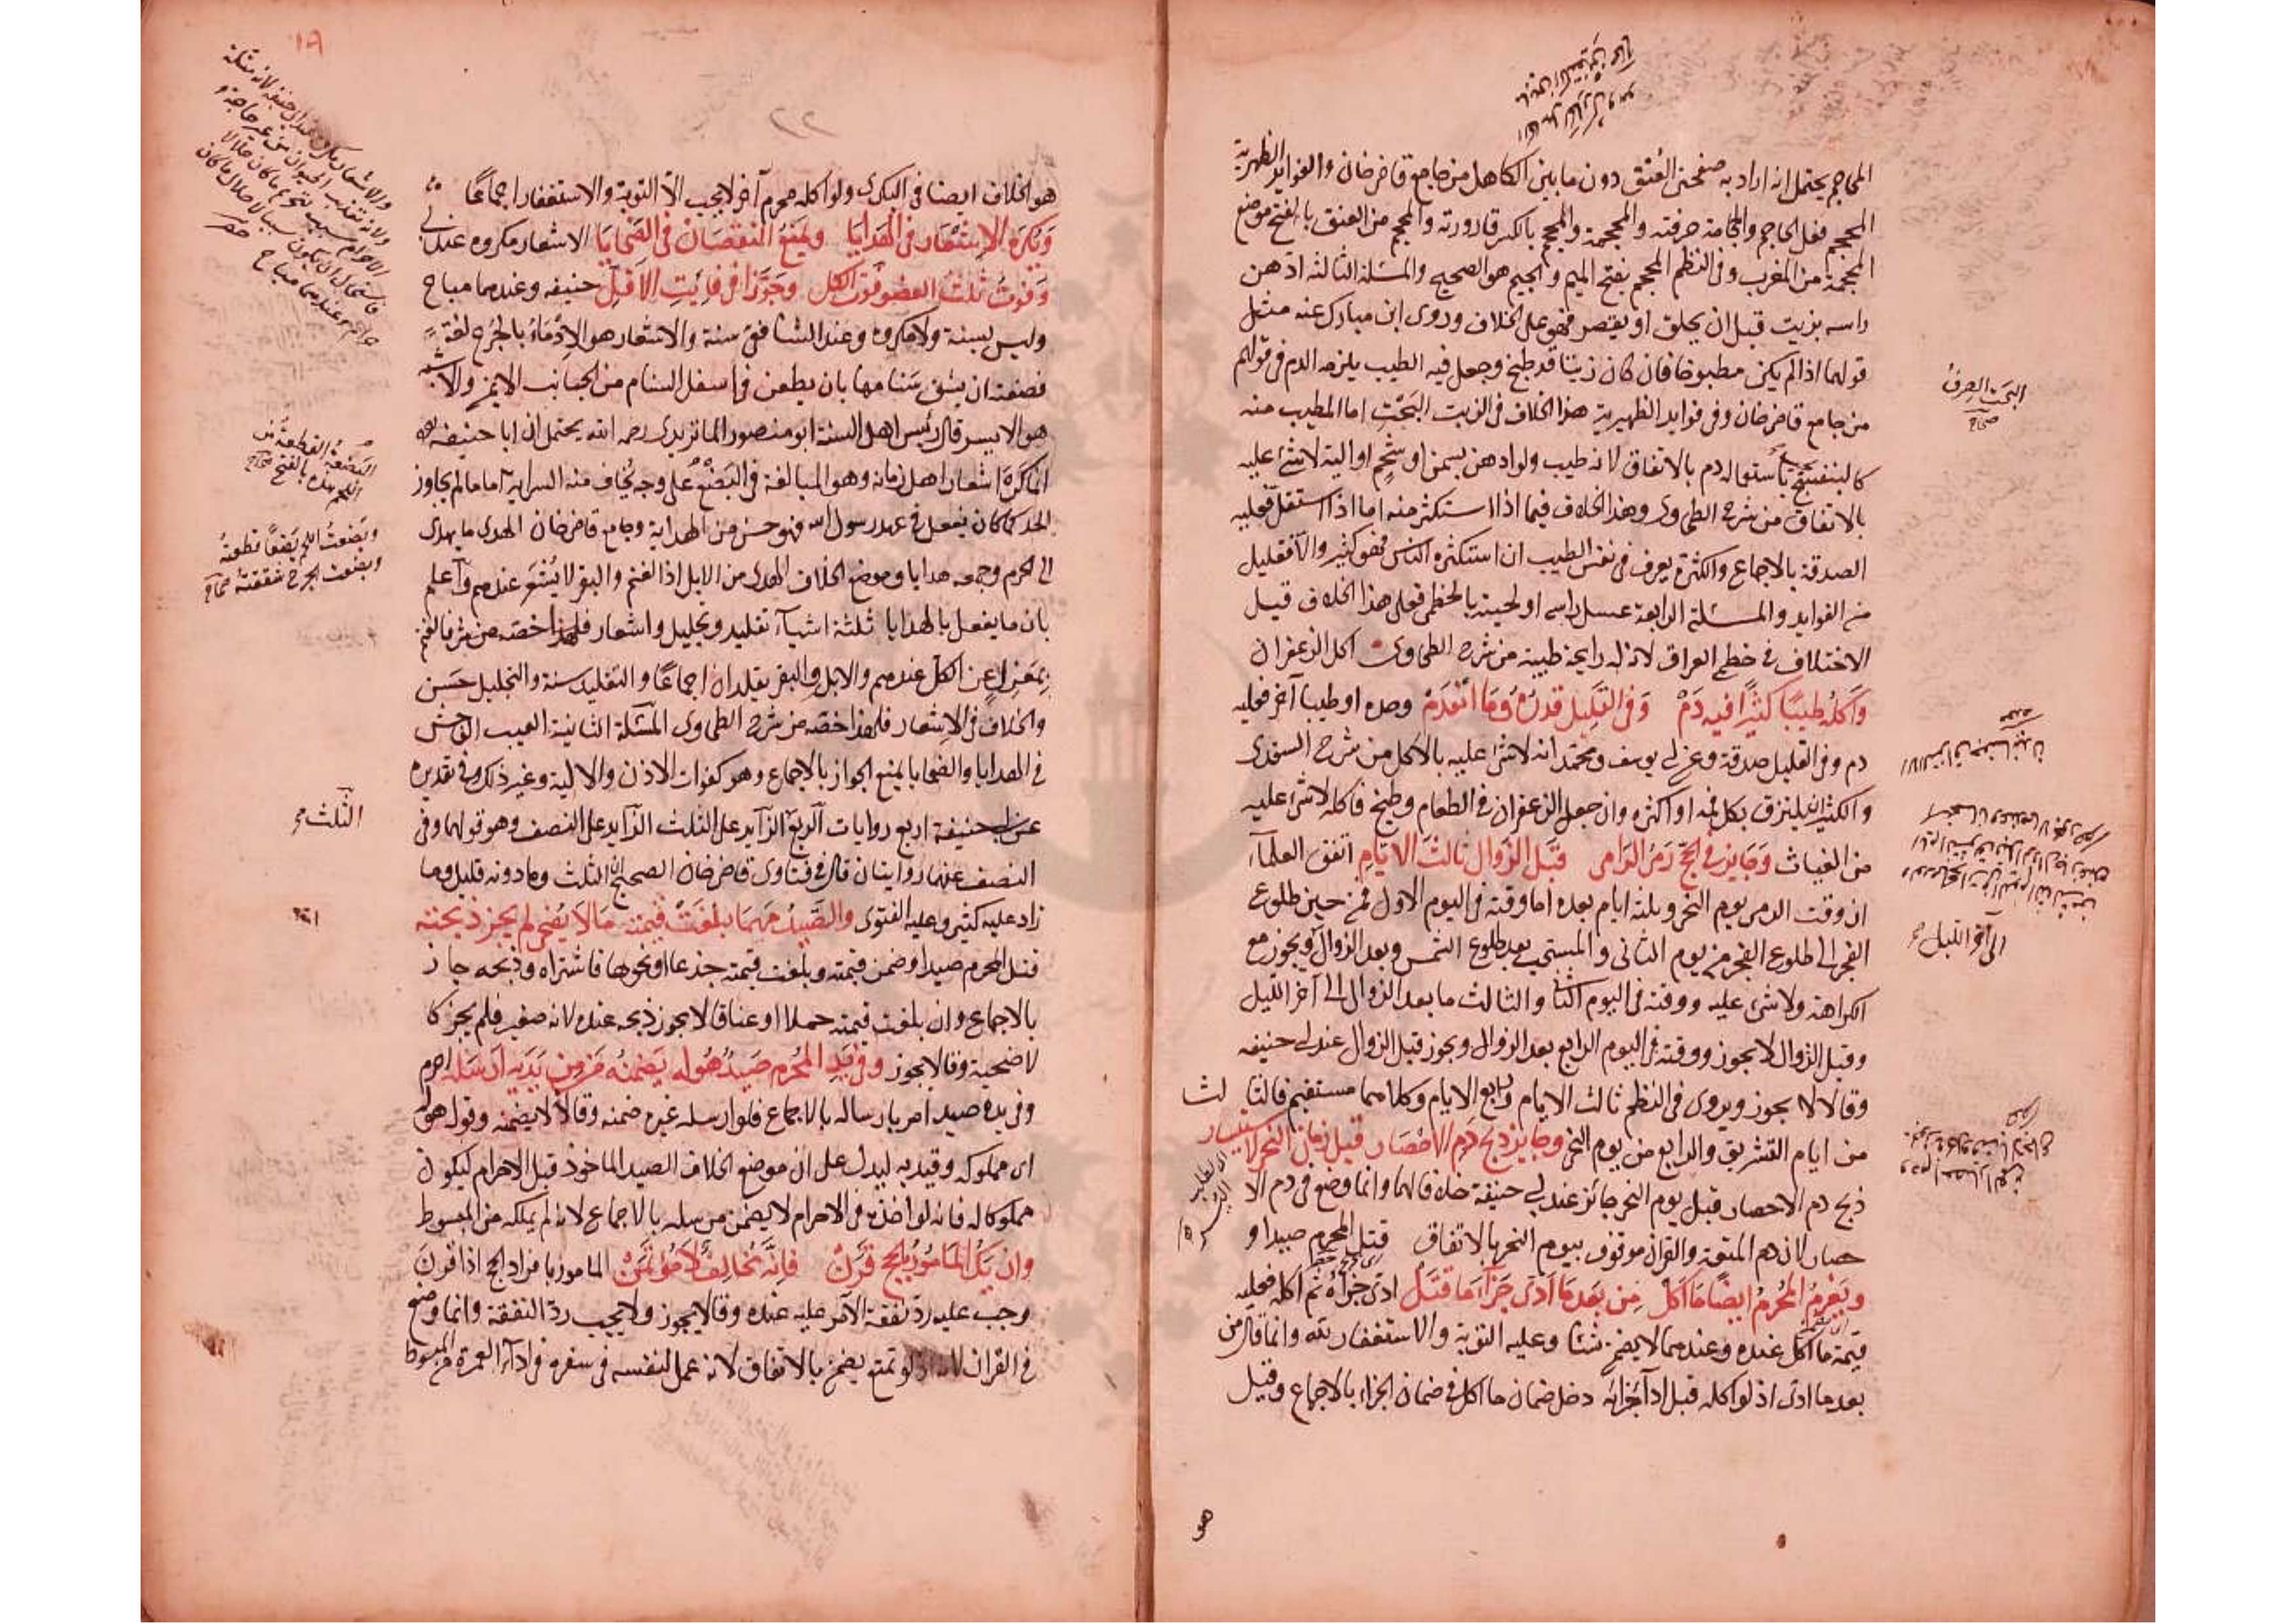 المحاجم يحتمل انه اراد به صفحتى العنق دون ما بين الكاهل من جامع قاضى خان والفوائد الظهيرية
الحجم فعل الحاجم والحجامة حرفته والمحجمة والمحجم بالكسر قارورته والمحجم من العنق بالفتح موضع
المحجمة من المغرب وفى النظم المحجم بفتح الميم والجيم هو الصحيح والمسئلة الثالثة ادهن
راسه بزيت قبل ان يحلق او يقصر فهو على الخلاف وروى ابن مبارك عنه مثل
قولهما اذا لم يكن مطبوخا فان كان زيتا قد طبخ وجعل فيه الطيب يلزمه الدم فى قولهم
من جامع قاضى خان وفى فوايد الظهيرية هذا الخلاف فى الزيت البحت اما المطيب منه
كالبنفسج يجب باستعماله دم بالاتفاق لانه طيب ولو ادهن بسمن او شحم او الية لا شئ عليه
بالاتفاق من شرح الطحاوى وهذا الخلاف فيما اذا استكثر منه اما اذا استقل فعليه
الصدقة بالاجماع والكثرة يعرف فى نفس الطيب ان استكثره الناس فهو كثير والا فقليل
من الفوايد والمسئلة الرابعة غسل راسه او لحيته بالخطمى فعلى هذا الخلاف قيل
الاختلاف فى خطمى العراق لانه له رايحة طيبة من شرح الطحاوى اكل الزعفران
واكله طيبا كثيرا فيه دم وفى القليل قدره وما انعدم وحده او طيبا آخر فعليه
دم وفى القليل صدقة وعن ابى يوسف ومحمد انه لا شئ عليه بالاكل من شرح السغدى
والكثير ان يلتزق بكل فمه او اكثره وان جعل الزعفران فى الطعام وطبخ فاكله لا شئ عليه
من الغياث وجايز فى الحج رمى الرامى قبل الزوال ثالث الايام اتفق العلماء
ان وقت الرمى يوم النحر وثلثة ايام بعده اما وقته فى اليوم الاول فمن حين طلوع
الفجر الى طلوع الفجر من يوم الثانى والمستحب بعد طلوع الشمس وبعد الزوال ويجوز مع
الكراهة ولا شئ عليه ووقته فى اليوم الثانى والثالث ما بعد الزوال الى آخر الليل
وقبل الزوال لا يجوز ووقته فى اليوم الرابع بعد الزوال ويجوز قبل الزوال عند ابى حنيفه
وقالا لا يجوز ويروى فى النظم ثالث الايام ورابع الايام وكلاهما مستقيم فالثالث
من ايام التشريق والرابع من يوم النحر وجايز ذبح دم الاحصار قبل زمان النحر لاستيسار
ذبح دم الاحصار قبل يوم النحر جائز عند ابى حنيفة خلافا لهما وانما وضع فى دم الا
حصار لان دم المتعة والقران موقوف بيوم النحر بالاتفاق قتل المحرم صيدا و
ويغرم المحرم ايضا ما اكل من بعد ما ادى جزاء ما قتل ادى جزاءه ثم اكله فعليه
قيمة ما اكل عنده وعندهما لا يضمن شئا وعليه التوبة والاستغفار بته وانما قال من
بعد ما ادى اذ لو اكله قبل اداء جزائه دخل ضمان ما اكل فى ضمان الجزاء بالاجماع وقيل
هو
البحت الصرف
صحاح
الى آخر الليل
١٩
٢٢
هو الخلاف ايضا فى البكرى ولو اكله محرم آخر لا يجب الا التوبة والاستغفار اجماعا
ويكره الاشعار فى الهدايا ويمنع النقصان فى الضحايا الاشعار مكروه عند ابى
وفوت ثلث العضو فوت الكل وجوزا فى فايت الاقل حنيفه وعندهما مباح
وليس بسنة ولا مكروه وعند الشافعى سنة والاشعار هو الادماء بالجرح لغة
فصفته ان يشق سنامها بان يطعن فى اسفل السنام من الجانب الايمن والاشبه
هو الايسر قال رئيس اهل السنة ابو منصور الماتريدى رحمه الله يحتمل ان ابا حنيفه
انما كره اشعار اهل زمانه وهو المبالغة فى البضع على وجه يخاف منه السراية اما ما لم يجاوز
الحد كما كان يفعل فى عهد رسول الله فهو حسن من الهداية وجامع قاضى خان الهدى ما يهدى
الى الحرم وجمعه هدايا وموضع الخلاف الهدى من الابل اذ الغنم والبقر لا يشعر عندهم واعلم
بان ما يفعل بالهدايا ثلثة اشياء تقليد وتجليل واشعار فلهذا خصه من شرفا الغنم
بمعزل عن الكل عندهم والابل والبقر يقلدان اجماعا والتقليد سنة والتجليل حسن
والخلاف فى الاشعار فلهذا خصه من شرح الطحاوى المسئلة الثانية العيب الفاحش
فى الهدايا والضحايا يمنع الجواز بالاجماع وهو كفوات الاذن والالية وغير ذلك وفى تقديره
عن ابى حنيفة اربع روايات الربع الزايد على الثلث الزايد على النصف وهو قولهما وفى
النصف عنهما روايتان قال فى فتاوى قاضى خان الصحيح ان الثلث وما دونه قليل وما
زاد عليه كثير وعليه الفتوى والصيد مهما بلغت قيمته ما لا يضحى لم يجز ذبحته
قتل المحرم صيدا وضمن قيمته وبلغت قيمته جذعا او نحوها فاشتراه وذبحه جاز
بالاجماع وان بلغت قيمته حملا او عناقا لا يجوز ذبحه عنده لانه صغير فلم يجز كا
لاضحية وقالا يجوز وفى يد المحرم صيد هو له يضمنه من من يديه ارسله احرم
وفى يده صيد امر بارساله بالاجماع فلو ارسله غيره ضمنه وقالا لا يضمنه وقوله هو له
اى مملوكه وقيد به ليدل على ان موضع الخلاف الصيد الماخوذ قبل الاحرام ليكون
مملوكا له فانه لو اخذه فى الاحرام لا يضمن مرسله بالاجماع لانه لم يملكه من المبسوط
وان يك المأمور بالحج قرن فانه مخالف لا مؤتمن المامور بافراد الحج اذا قرن
وجب عليه رد نفقة الآمر عليه عنده وقالا يجوز ولا يجب رد النفقة وانما وضع
فى القران لانه لو تمتع يضمن بالاتفاق لانه عمل لنفسه فى سفره فى اداء العمرة من المبسوط
البضعة القطعة من
اللحم هذه بالفتح صحاح
وبضعت اللحم بضعا قطعته
وبضعت الجرح شققته صحاح
الثلث